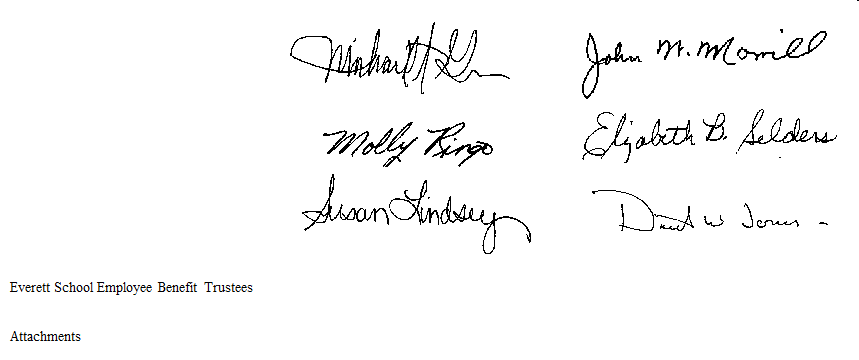 John M. Morrill
Molly Ringo Elizabeth B. Selders
Susan Lindsey David W Jones
Everett School Employee Benefit Trustees
Attachments